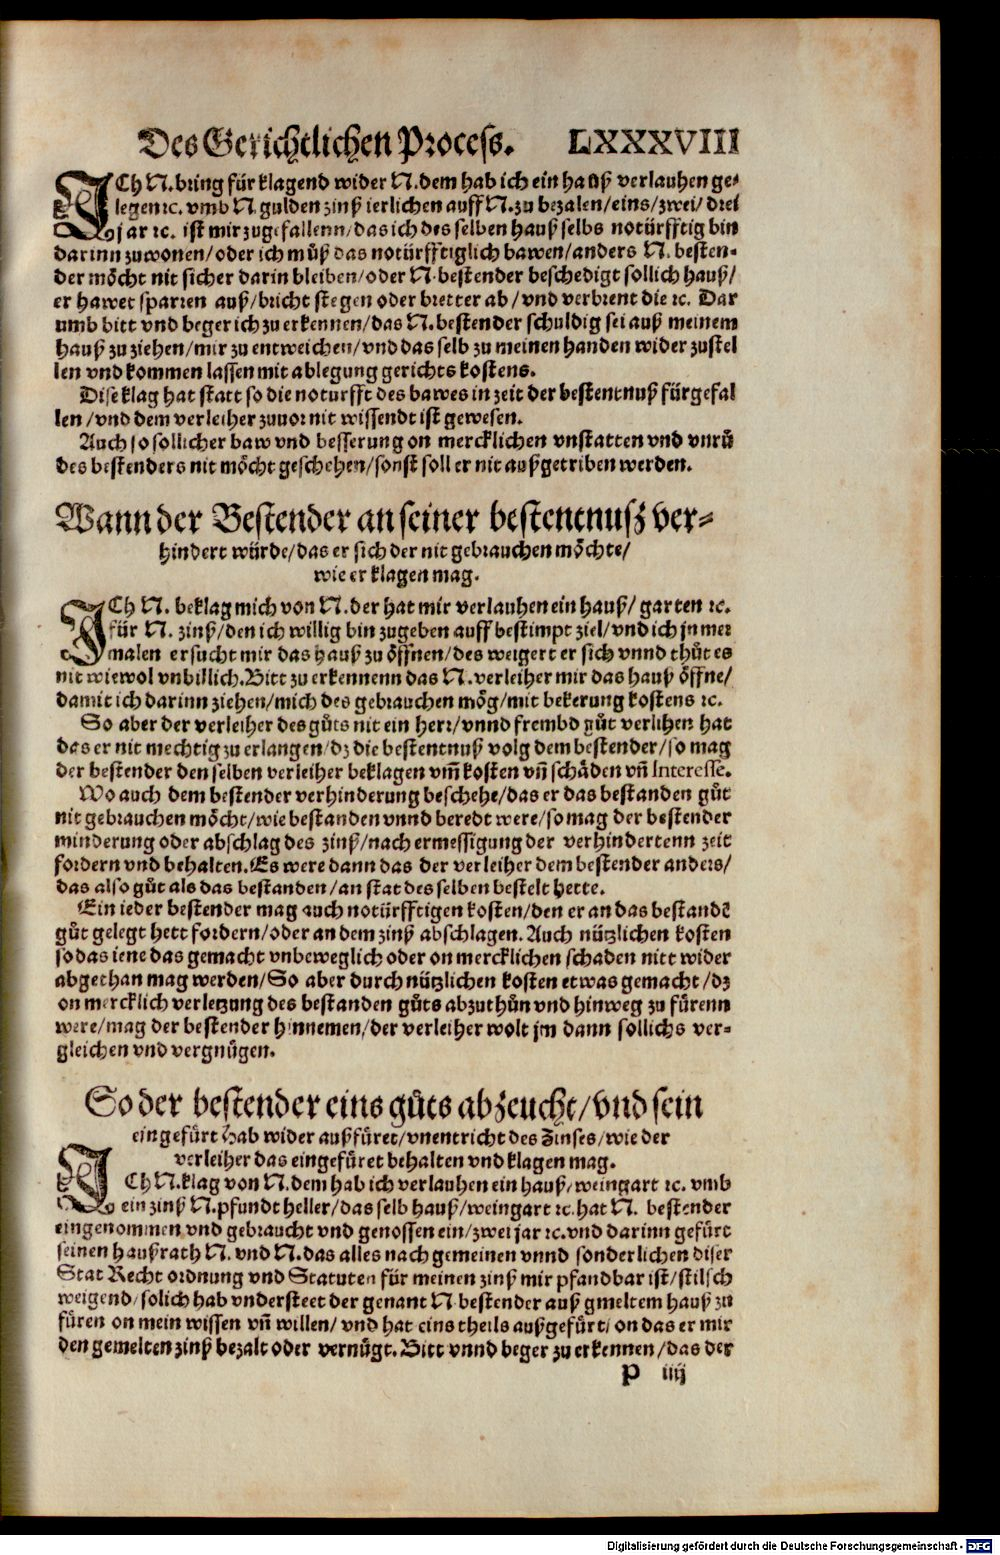 Des Gerichtlichen Process. LXXXVIII
ICh N. bring für klagend wider N. dem hab ich ein hauß verlauhen ge-
legen ꝛc. vmb N. gulden zinß ierlichen auff N. zu bezalen/ eins/ zwei/ drei
jar ꝛc. ist mir zugefallenn/ das ich des selben hauß selbs notürfftig bin
darinn zuwonen/ oder ich müß das notürfftiglich bawen/ anders N. besten-
der möcht nit sicher darin bleiben/ oder N. bestender beschedigt sollich hauß/
er hawet sparren auß/ bricht stegen oder bretter ab/ vnd verbrent die ꝛc. Dar
umb bitt vnd beger ich zu erkennen/ das N. bestender schuldig sei auß meinem
hauß zu ziehen/ mir zu entweichen/ vnd das selb zu meinen handen wider zustel
len vnd kommen lassen mit ablegung gerichts kostens.
Dise klag hat statt so die noturfft des bawes in zeit der bestentnuß fürgefal
len/ vnd dem verleiher zuuor nit wissendt ist gewesen.
Auch so sollicher baw vnd besserung on mercklichen vnstatten vnd vnrü
des bestenders nit möcht geschehen/ sonst soll er nit außgetriben werden.
Wann der Bestender an seiner bestentnusz ver-
hindert würde/ das er sich der nit gebrauchen möchte/
wie er klagen mag.
ICh N. beklag mich von N. der hat mir verlauhen ein hauß/ garten ꝛc.
für N. zinß/ den ich willig bin zugeben auff bestimpt ziel/ vnd ich jn mer
malen ersucht mir das hauß zu öffnen/ des weigert er sich vnnd thůt es
nit wiewol vnbillich. Bitt zu erkennenn das N. verleiher mir das hauß öffne/
damit ich darinn ziehen/ mich des gebrauchen mög/ mit bekerung kostens ꝛc.
So aber der verleiher des gůts nit ein herr/ vnnd frembd gůt verlihen hat
das er nit mechtig zu erlangen/ dz die bestentnuß volg dem bestender/ so mag
der bestender den selben verleiher beklagen vm̄ kosten vn̄ schäden vn̄ Interesse.
Wo auch dem bestender verhinderung beschehe/ das er das bestanden gůt
nit gebrauchen möcht/ wie bestanden vnnd beredt were/ so mag der bestender
minderung oder abschlag des zinß/ nach ermessigung der verhindertenn zeit
fordern vnd behalten. Es were dann das der verleiher dem bestender anders/
das also gůt als das bestanden/ an stat des selben bestelt hette.
Ein ieder bestender mag auch notürfftigen kosten/ den er an das bestandē
gůt gelegt hett fordern/ oder an dem zinß abschlagen. Auch nützlichen kosten
so das iene das gemacht vnbeweglich oder on mercklichen schaden nitt wider
abgethan mag werden/ So aber durch nützlichen kosten etwas gemacht/ dz
on mercklich verletzung des bestanden gůts abzuthůn vnd hinweg zu fürenn
were/ mag der bestender hinnemen/ der verleiher wolt jm dann sollichs ver-
gleichen vnd vergnügen.
So der bestender eins gůts abzeucht/ vnd sein
eingefürt hab wider außfüret/ vnentricht des Zinses/ wie der
verleiher das eingefüret behalten vnd klagen mag.
ICh N. klag von N. dem hab ich verlauhen ein hauß/ weingart ꝛc. vmb
ein zinß N. pfundt heller/ das selb hauß/ weingart ꝛc. hat N. bestender
eingenommen vnd gebraucht vnd genossen ein/ zwei jar ꝛc. vnd darinn gefürt
seinen haußrath N. vnd N. das alles nach gemeinen vnnd sonderlichen diser
Stat Recht ordnung vnd Statuten für meinen zinß mir pfandbar ist/ stilsch
weigend/ solich hab vndersteet der genant N. bestender auß gmeltem hauß zu
füren on mein wissen vn̄ willen/ vnd hat eins theils außgefürt/ on das er mir
den gemelten zinß bezalt oder vernügt. Bitt vnnd beger zu erkennen/ das der
P iiij
Digitalisierung gefördert durch die Deutsche Forschungsgemeinschaft - DFG